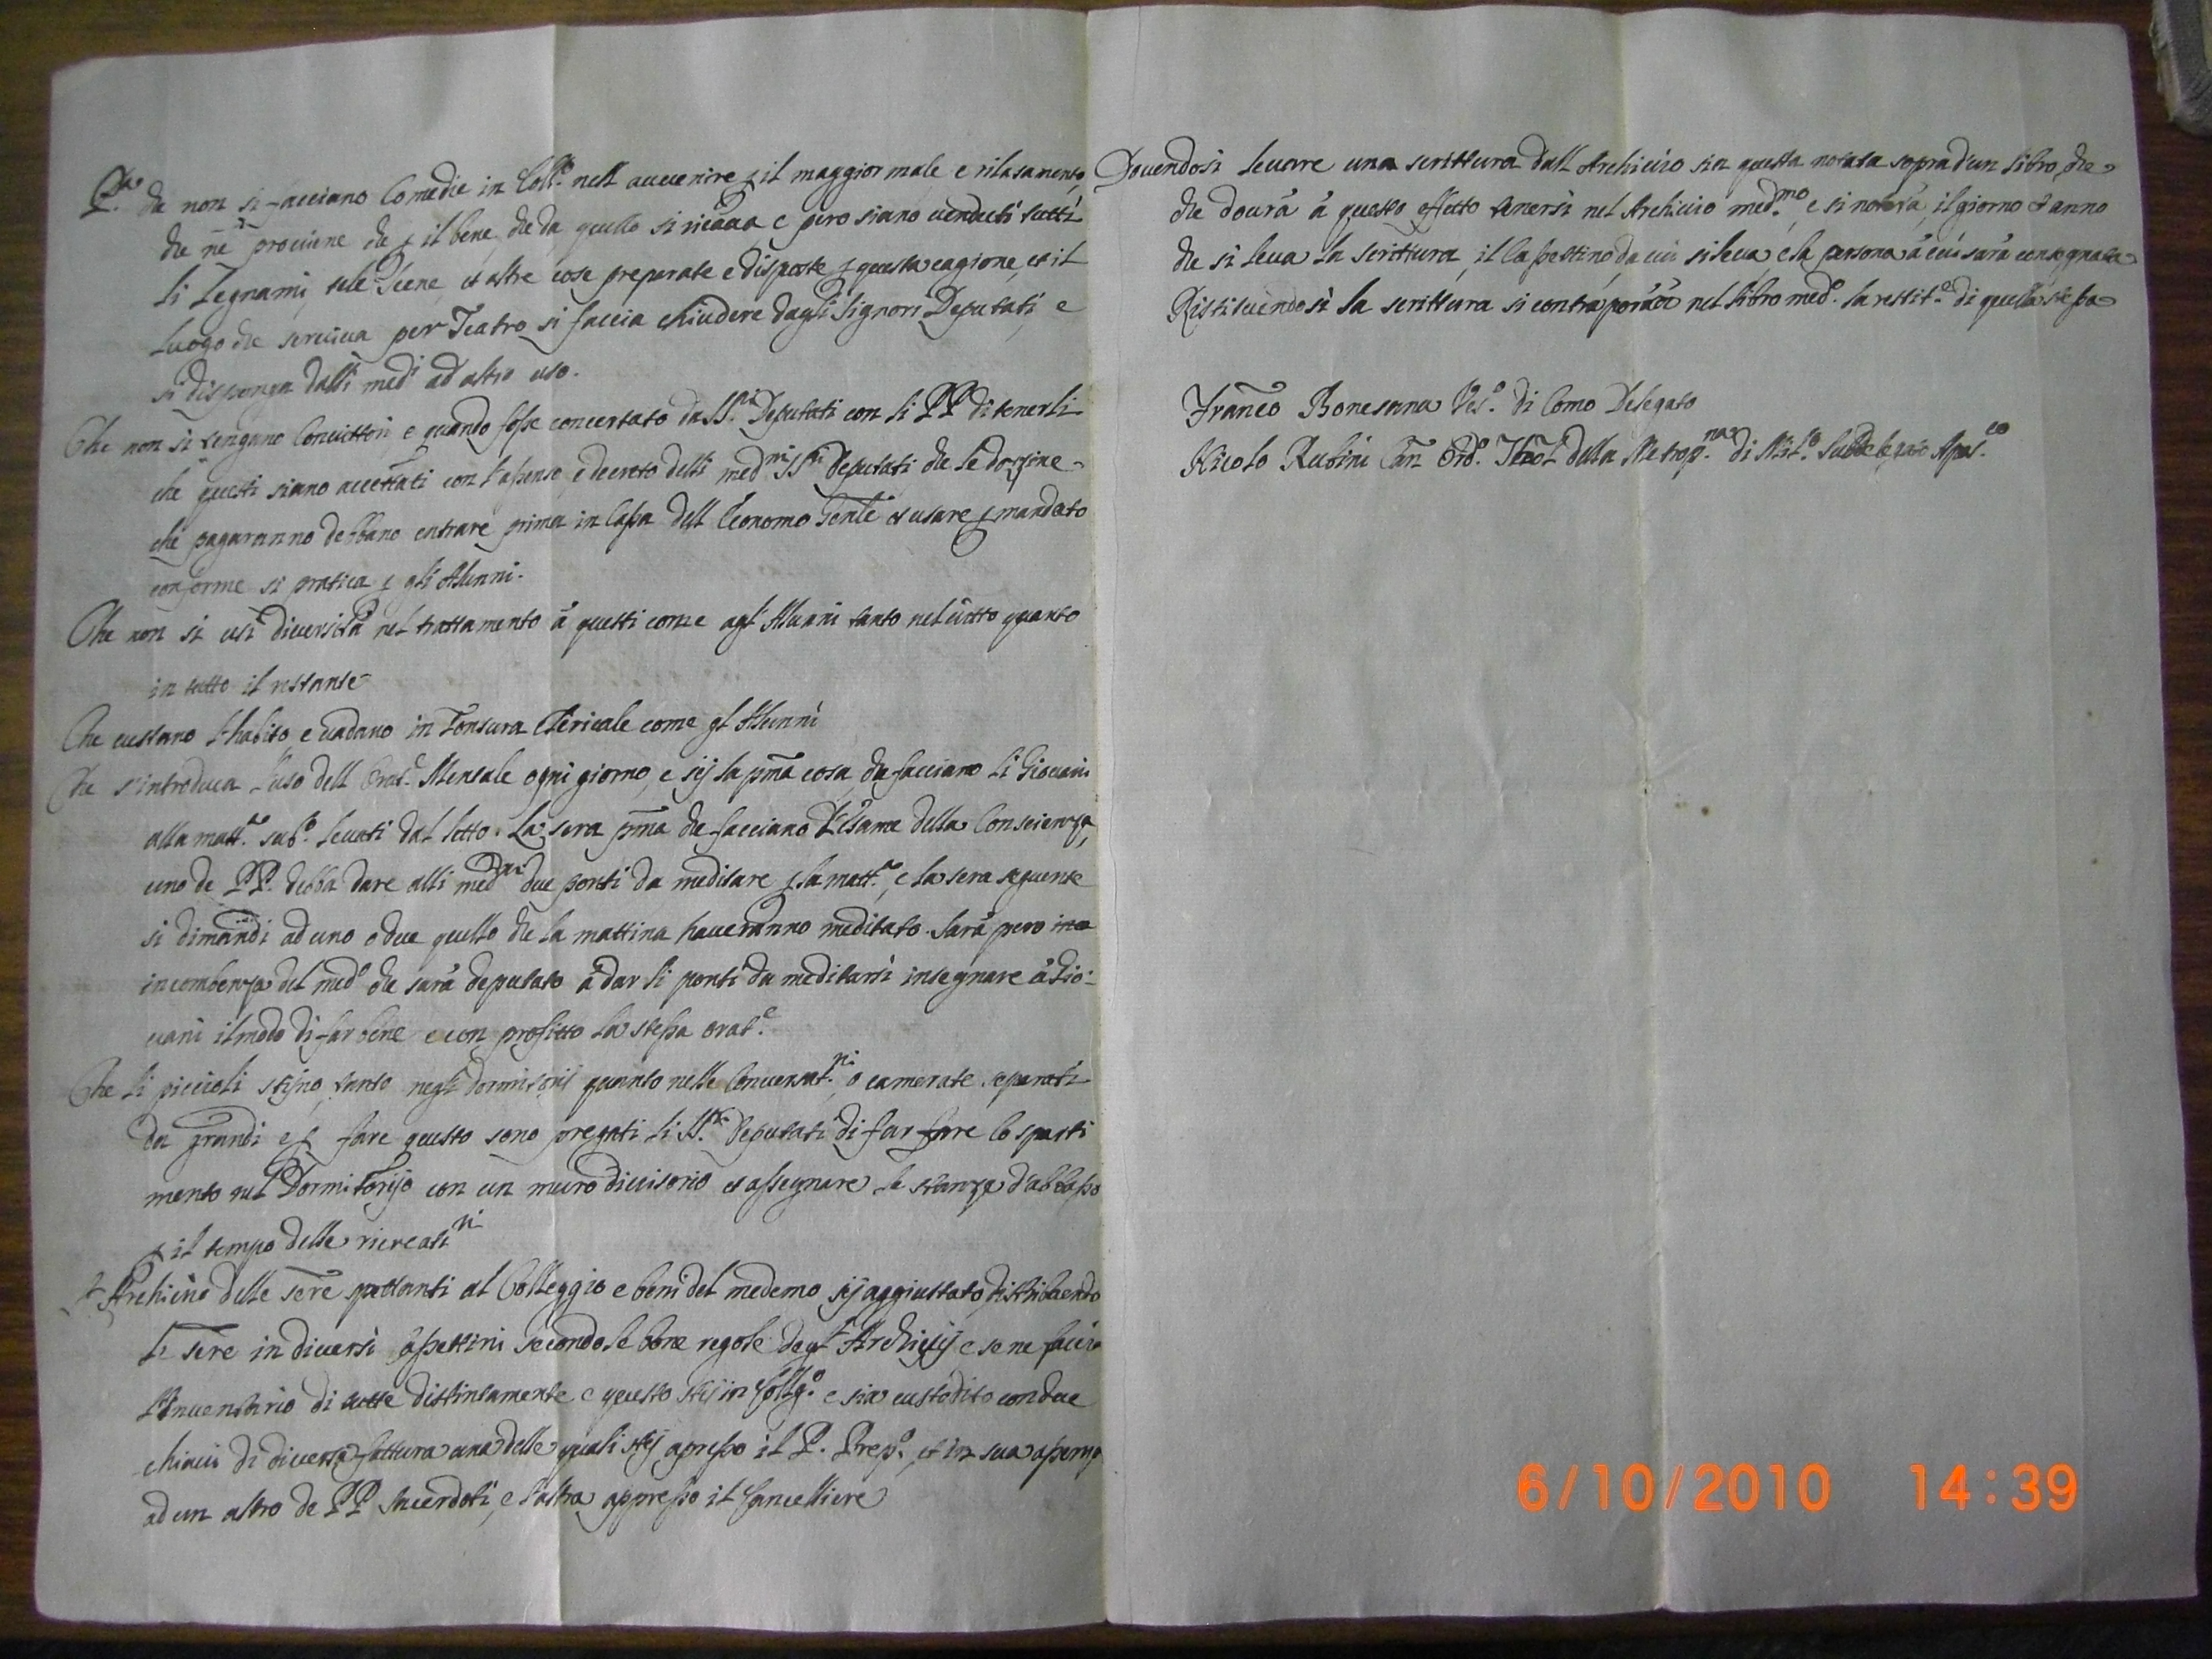 P.ª che non si facciano Comedie in Coll.º nell auuenire p il maggior male e rilasamento
che ne prouiene che p il bene, che da quello si ricaua e pero siano uenduti tutti
li Legnami, tele Scene, et altre cose preparate e disposte p questa cagione, et il
luogo che seruiua per Teatro si faccia chiudere dagli Signori Deputati, e
si disponga dalli med.i ad altro uso.
Che non si tengano Conuittori, e quando fosse concertato da SS.ri Deputati con li PP di tenerli
che questi siano accettati con l'assenso, e decreto delli med.mi SS.ri Deputati che le dozzine
che pagaranno debbano entrare prima in Cassa dell Economo Gen.le et usare p mandato
conforme si pratica p gli Alunni.
Che non si usi diuersità nel trattamento à questi come agl'Alunni tanto nel uitto quanto
in tutto il restante
Che uestano l'habito e uadano in Tonsura Clericale come gl'Alunni
Che s'introduca l'uso dell Orat.e Mentale ogni giorno, e sij la pma cosa, che facciano li Giouani
alla matt.a sub.º leuati dal letto. La sera pma che facciano l'Esame della Conscienza,
uno de PP. debba dare alli med.mi due ponti da meditare p la matt.a, e la sera seguente
si dimandi ad uno o due quello che la mattina haueranno meditato. Sarà pero
incombenza del med.º che sarà deputato à dar li ponti da meditarsi insegnare à Gio-
uani il modo di far bene e con profitto la stessa orat.e
Che li piccioli stijno tanto negli dormitorij quanto nelle Conuersat.ni o camerate separati
da grandi e p fare questo sono pregati li SS.ri Deputati di far fare lo sparti
mento nel Dormitorijo con un muro diuisorio et assegnare le stanze d'abbasso
p il tempo delle ricreati.ni
L'Archiuio delle scre spettanti al Colleggio e beni del medemo sij aggiustato distribuendo
le scre in diuersi Cassettini secondo le bone regole degl'Archiuij e se ne faccia
l'Inuentario di tutte distintamente e questo stij in Collg.º e sia custodito con due
chiaui di diuersa fattura una delle quali stij apresso il P. Prep.º, et in sua assenza
ad un altro de PP Sacerdoti, e l'altra appresso il Cancelliere
Douendosi leuare una scrittura dall Archiuio sia questa notata sopra d'un libro, che
che dourà à questo effetto tenersi nel Archiuio med.mo e si noterà il giorno et anno
che si leua la scrittura, il Cassettino da cui si leua, e la persona à cui sarà consegnata
Ristituendosi la scrittura si contraporà nel libro med.º la restit.e di quella stessa
Franco Bonesana Ves.º di Como Delegato
Nicolo Rubini Can. Ord.º della Metrop.na di Mil.º Subdelegato Apos.co
6/10/2010 14:39